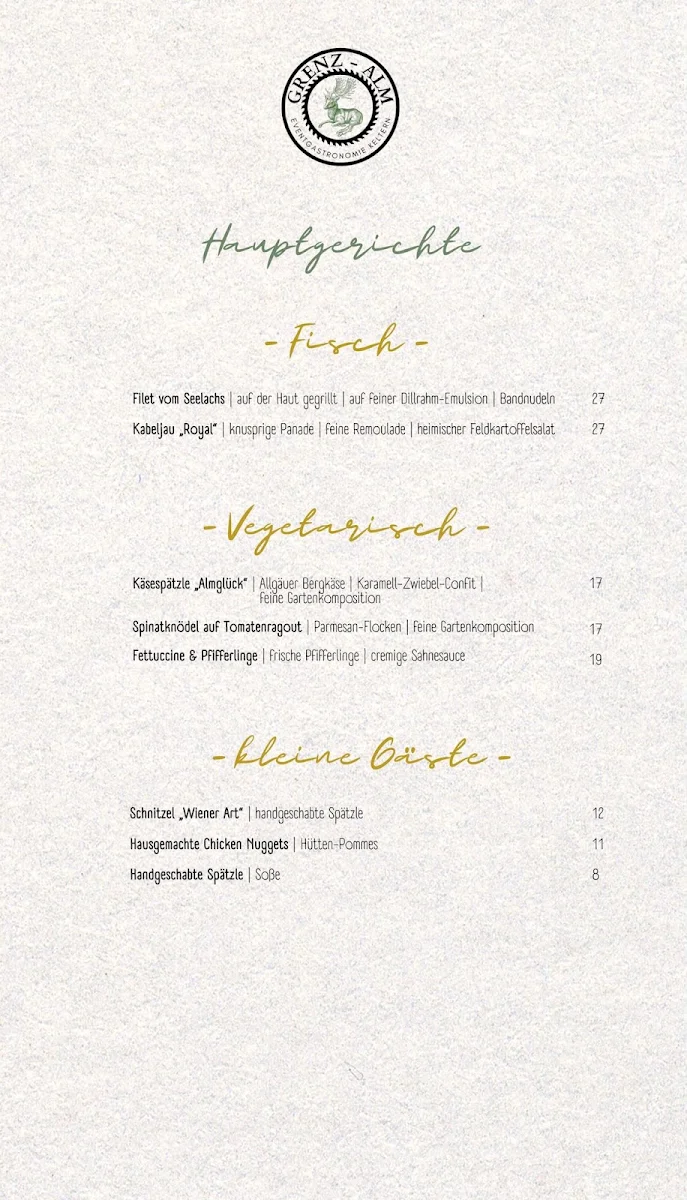 GRENZ - ALM
EVENTGASTRONOMIE KELTERN
Hauptgerichte
- Fisch -
Filet vom Seelachs | auf der Haut gegrillt | auf feiner Dillrahm-Emulsion | Bandnudeln 27
Kabeljau „Royal“ | knusprige Panade | feine Remoulade | heimischer Feldkartoffelsalat 27
- Vegetarisch -
Käsespätzle „Almglück“ | Allgäuer Bergkäse | Karamell-Zwiebel-Confit | 17
feine Gartenkomposition
Spinatknödel auf Tomatenragout | Parmesan-Flocken | feine Gartenkomposition 17
Fettuccine & Pfifferlinge | frische Pfifferlinge | cremige Sahnesauce 19
- kleine Gäste -
Schnitzel „Wiener Art“ | handgeschabte Spätzle 12
Hausgemachte Chicken Nuggets | Hütten-Pommes 11
Handgeschabte Spätzle | Soße 8